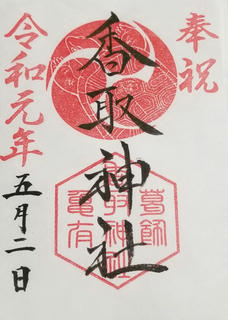 奉祝
香取神社
葛飾
香取神社
亀有
令和元年
五月二日